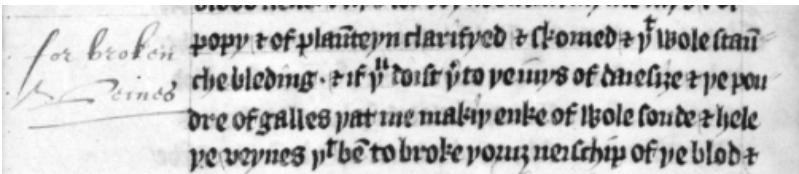 for broken
Veines
popy ⁊ of plaūteyn clarifyed ⁊ skomed ⁊ yͭ wole staū
che bleding · ⁊ if yᵘ doist yͭ to ye iuys of daiesize ⁊ ye pou
dre of galles yat me makiy enke of wole sonde ⁊ hele
ye veynes yͭ bē to broke yoruz neischip of ye blod ⁊